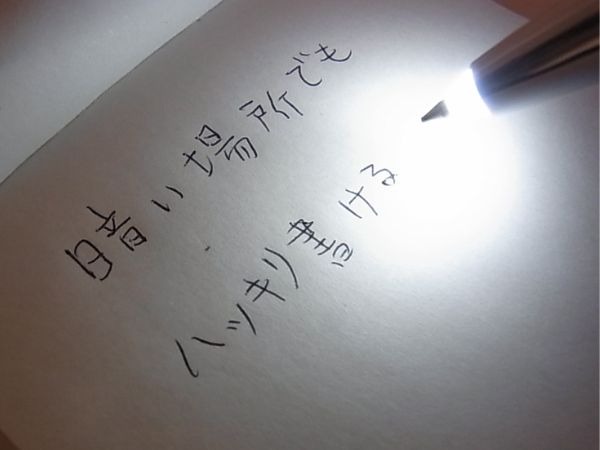 暗い場所でも
ハッキリ書ける